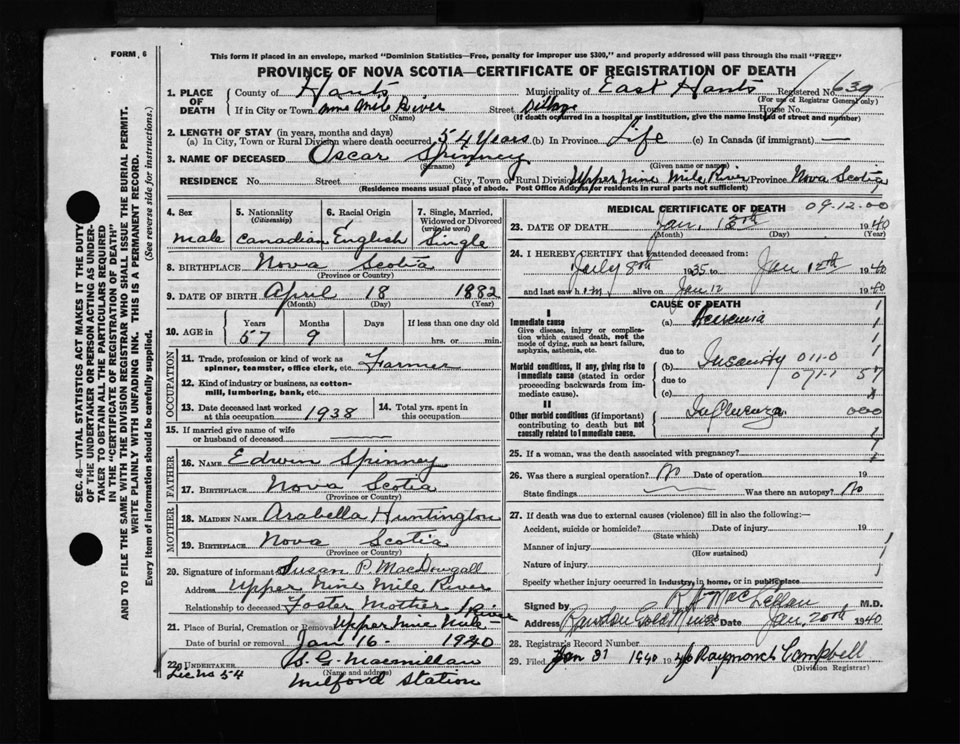 FORM. 6
This form if placed in an envelope, marked "Dominion Statistics—Free, penalty for improper use $300," and properly addressed will pass through the mail "FREE"
PROVINCE OF NOVA SCOTIA—CERTIFICATE OF REGISTRATION OF DEATH
1. PLACE OF DEATH County of Hants Municipality of East Hants Registered No. 639
(For use of Registrar General only)
If in City or Town Nine Mile River Street Village House No.
(Name) (If death occurred in a hospital or institution, give the name instead of street and number)
2. LENGTH OF STAY (in years, months and days)
(a) In City, Town or Rural Division where death occurred 54 Years (b) In Province Life (c) In Canada (if immigrant) —
3. NAME OF DECEASED Oscar Spinney
(Surname) (Given name or names)
RESIDENCE No. Street City, Town or Rural Division Upper Nine Mile River Province Nova Scotia
(Residence means usual place of abode. Post Office Address for residents in rural parts not sufficient)
4. Sex
Male
5. Nationality
(Citizenship)
Canadian
6. Racial Origin
English
7. Single, Married, Widowed or Divorced
(write the word)
Single
8. BIRTHPLACE Nova Scotia
(Province or Country)
9. DATE OF BIRTH April 18 1882
(Month) (Day) (Year)
10. AGE in Years Months Days If less than one day old
57 9 hrs. or min.
OCCUPATION
11. Trade, profession or kind of work as
spinner, teamster, office clerk, etc. Farmer
12. Kind of industry or business, as cotton-
mill, lumbering, bank, etc.
13. Date deceased last worked
at this occupation 1938
14. Total yrs. spent in
this occupation
15. If married give name of wife
or husband of deceased —
FATHER
16. NAME Edwin Spinney
17. BIRTHPLACE Nova Scotia
(Province or Country)
MOTHER
18. MAIDEN NAME Arabella Huntington
19. BIRTHPLACE Nova Scotia
(Province or Country)
20. Signature of informant Susan P. MacDougall
Address Upper Nine Mile River
Relationship to deceased Foster Mother
21. Place of Burial, Cremation or Removal Upper Nine Mile River
Date of burial or removal Jan 16 1940
22. UNDERTAKER B. G. Macmillan
(Name and address)
Lic No 54
Milford Station
MEDICAL CERTIFICATE OF DEATH 09-12-00
23. DATE OF DEATH Jan. 13th 1940
(Month) (Day) (Year)
24. I HEREBY CERTIFY that I attended deceased from:
July 8th 1935 to Jan 12th 1940
and last saw him alive on Jan 12 1940
CAUSE OF DEATH
I
Immediate cause
Give disease, injury or complica-
tion which caused death, not the
mode of dying, such as heart failure,
asphyxia, asthenia, etc.
(a)
due to
Morbid conditions, if any, giving rise to
immediate cause (stated in order
proceeding backwards from im-
mediate cause).
(b) Insanity 011-0
due to 071-1 57
(c)
II
Other morbid conditions (if important)
contributing to death but not
causally related to immediate cause.
Influenza 000
25. If a woman, was the death associated with pregnancy?
26. Was there a surgical operation? No Date of operation 19
State findings — Was there an autopsy? No
27. If death was due to external causes (violence) fill in also the following:—
Accident, suicide or homicide? Date of injury 19
(State which)
Manner of injury
(How sustained)
Nature of injury
Specify whether injury occurred in industry, in home, or in public place
Signed by MacLellan M.D.
Address Rawdon Gold Mines Date Jan, 20th 1940
28. Registrar's Record Number
29. Filed Jan 31 1940 Raymond Campbell
(Division Registrar)
SEC. 46—VITAL STATISTICS ACT MAKES IT THE DUTY
OF THE UNDERTAKER OR PERSON ACTING AS UNDER-
TAKER TO OBTAIN ALL THE PARTICULARS REQUIRED
IN THE "CERTIFICATE OF REGISTRATION OF DEATH"
AND TO FILE THE SAME WITH THE DIVISION REGISTRAR WHO SHALL ISSUE THE BURIAL PERMIT.
WRITE PLAINLY WITH UNFADING INK. THIS IS A PERMANENT RECORD.
Every item of information should be carefully supplied. (See reverse side for instructions.)